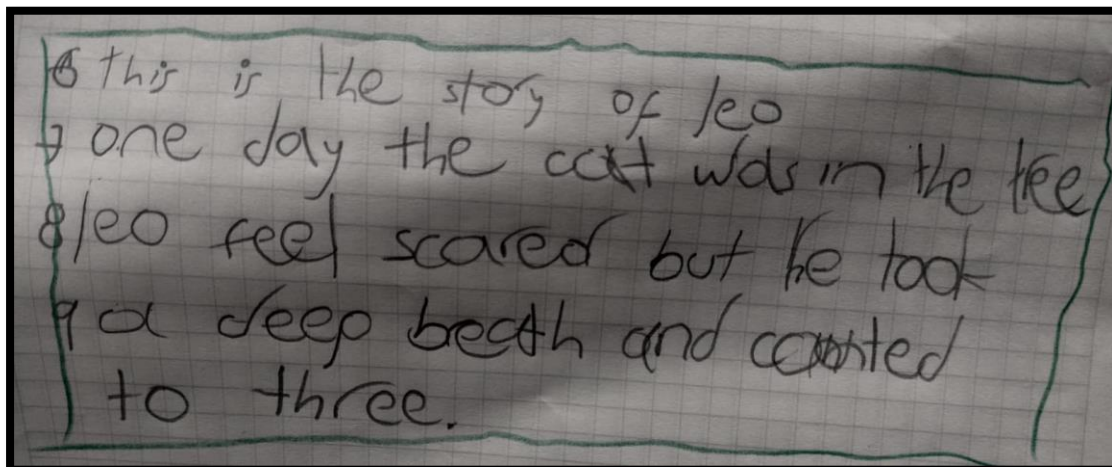 6 this is the story of leo
7 one day the cat was in the tee
8 leo feel scared but he took
9 a deep beath and counted
to three.